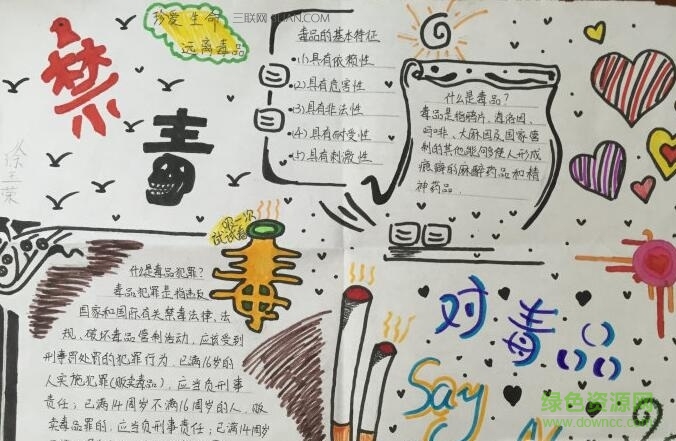 珍爱生命
三联网 3LIAN.COM
远离毒品
禁
毒
毒品的基本特征
(1)具有依赖性
(2)具有危害性
(3)具有非法性
(4)具有耐受性
(5)具有刺激性
什么是毒品?
毒品是指鸦片、海洛因、
吗啡、大麻因及国家管
制的其他能够使人形成
瘾癖的麻醉药品和精
神药品.
吸一次
试试看
什么是毒品犯罪?
毒品犯罪是指违反
国家和国际有关禁毒法律、法
规、破坏毒品管制活动,应该受到
刑事罚处罚的犯罪行为,已满16岁的
人实施犯罪(贩卖毒品),应当负刑事
责任;已满14周岁不满16周岁的人,贩
卖毒品罪的,应当负刑事责任;已满14周岁
对毒品
Say
绿色资源网
www.downcc.com